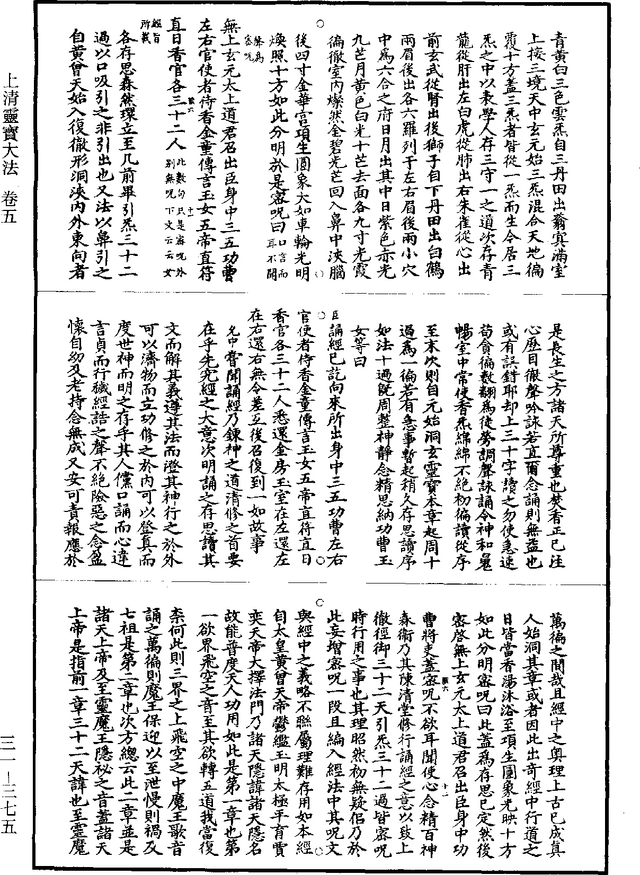 上清靈寶大法　卷五
三一—三七五
青黃白三色雲炁自三丹田出蓊冥滿室
上接三境天中玄元始三炁混合天地徧
覆十方蓋三炁者皆從一炁而生令居三
炁之中以表學人存三守一之道次存青
龍從肝出左白虎從肺出右朱雀從心出
前玄武從腎出後獅子自下丹田出白鶴
兩眉後出各六羅列于左右眉後兩小穴
中為六合之府日月出其中日紫色亦光
九芒月黃色白光十芒去面各九寸光霞
徧徹室內燦然金碧光芒回入鼻中浹腦
後四寸金華宮項生圓象大如車輪光明
煥照十方如此分明於是密呪曰口言而耳不聞
無上玄元太上道君召出臣身中三五功曹
左右官使者侍香金童傳言玉女五帝直符
直日香官各三十二人
各存思森然環立至几前畢引炁三十二
過以口吸引之非引出也又法以鼻引之
自黃曾天始入復徹形洞浹內外東向者
是長生之方諸天所尊重也焚香正已注
心歷目徹聲吟詠若直爾念誦則無益也
或有訣釘耶却上三十字讀之勿使急速
苟貪徧數翻為徒勞調聲詠誦令神和晏
暢室中常使香炁綿綿不絕初徧讀從序
至末次則自元始洞玄靈寶本章起周十
過為一徧若有急事暫起稍久存思讀序
如法十過既周整神靜念精思納功曹玉
女等曰
臣誦經已訖向來所出身中三五功曹左右
官使者侍香金童傳言玉女五帝直符直日
香官各三十二人悉還金房玉室在左還左
在右還右無令差互後召復到一如故事
允中嘗聞誦經乃鍊神之道清修之首要
在乎先究經之大意次明誦之存思讀其
文而解其義遵其法而澄其神行之於外
可以濟物而立功修之於內可以登真而
度世神而明之存乎其人儻口誦而心違
言貞而行穢經誥之聲不絕險惡之念盈
懷自幼及老持念無成又安可責報應於
萬徧之間哉且經中之奧理上古已成真
人始洞其章或者因此出奇經中行道之
日皆當香湯沐浴至項生圓象光映十方
如此分明密呪曰此蓋為存思已定然後
密啓無上玄元太上道君召出臣身中功
曹將吏蓋密呪不欲耳聞使心念精百神
森衛乃其陳清堂修行誦經之意以致上
徹徑御三十二天引炁三十二過皆密呪
時行用之事也其理昭然初無疑侶乃於
此妄增密呪一段且編入經法中其呪文
與經中之義略不聯屬理難存用如本經
自太皇黃曾天帝鬱繿玉明太極平育賈
奕天帝大擇法門乃諸天隱諱諸天隱名
故能普度天人功用如此是第一章也第
一欲界飛空之音至其欲轉五道我當復
柰何此則三界之上飛空之中魔王歌音
誦之萬徧則魔王保迎以至泄慢則禍及
七祖是第二章也次方總云此二章並是
諸天上帝及至靈魔王隱祕之音蓋諸天
上帝是指前一章三十二天諱也至靈魔